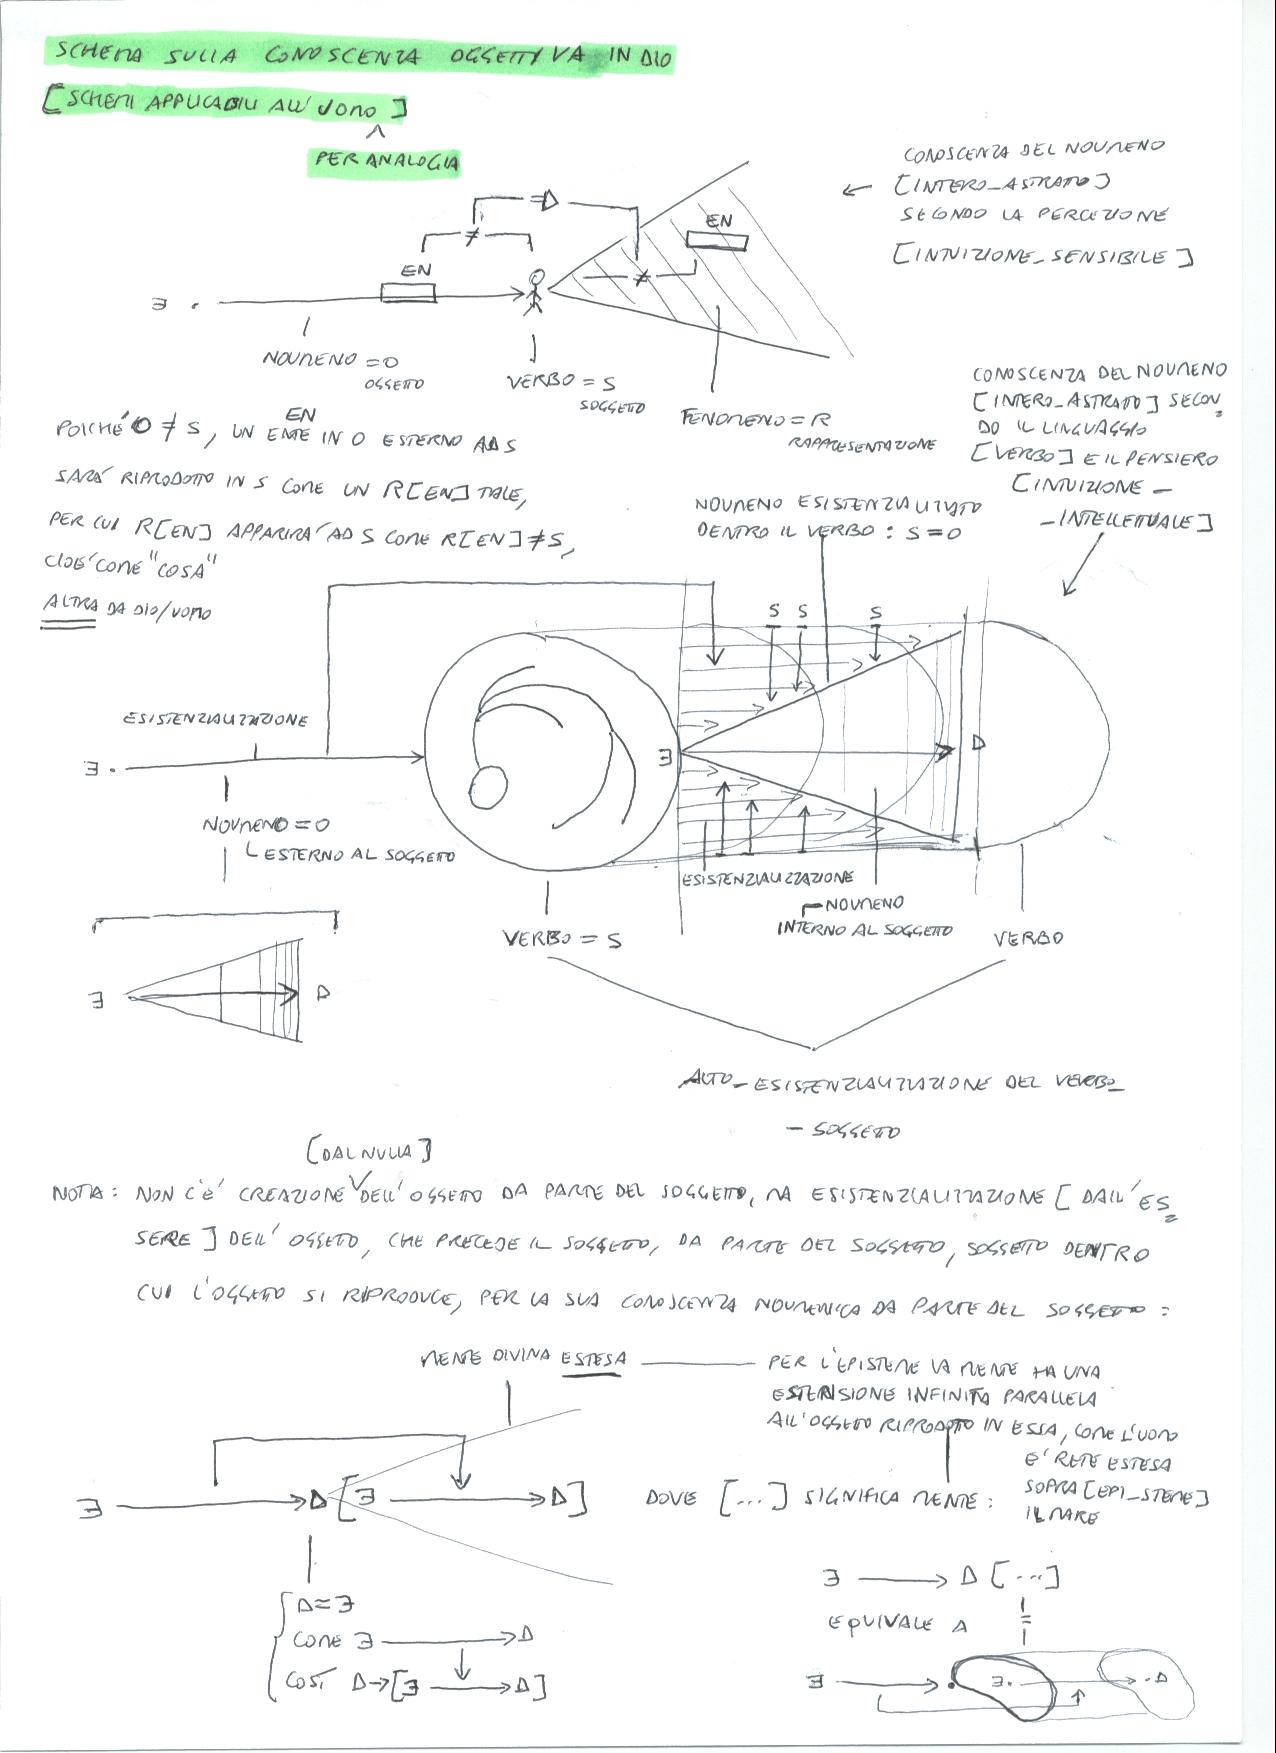 SCHEMA SULLA CONOSCENZA OGGETTIVA IN DIO
[SCHEMI APPLICABILI ALL'UOMO]
^
PER ANALOGIA
CONOSCENZA DEL NOUMENO
← [INTERO_ASTRATTO]
SECONDO LA PERCEZIONE
[INTUIZIONE_SENSIBILE]
=D
≠
EN
EN
≠
∃ .
NOUMENO = O
OGGETTO
VERBO = S
SOGGETTO
FENOMENO = R
RAPPRESENTAZIONE
POICHÉ O ≠ S, UN ENTE IN O ESTERNO AD S
EN
SARÀ RIPRODOTTO IN S COME UN R[EN] TALE,
PER CUI R[EN] APPARIRÀ AD S COME R[EN] ≠ S,
CIOÈ COME "COSA"
ALTRA DA DIO/UOMO
CONOSCENZA DEL NOUMENO
[INTERO_ASTRATTO] SECON
DO IL LINGUAGGIO
[VERBO] E IL PENSIERO
[INTUIZIONE –
– INTELLETTUALE]
NOUMENO ESISTENZIALIZZATO
DENTRO IL VERBO : S = O
S S S
ESISTENZIALIZZAZIONE
∃ .
∃
D
NOUMENO = O
ESTERNO AL SOGGETTO
ESISTENZIALIZZAZIONE
NOUMENO
INTERNO AL SOGGETTO
VERBO = S
VERBO
∃
D
AUTO_ESISTENZIALIZZAZIONE DEL VERBO_
– SOGGETTO
[DAL NULLA]
NOTA: NON C'È CREAZIONE DELL'OGGETTO DA PARTE DEL SOGGETTO, MA ESISTENZIALIZZAZIONE [DALL'ES
SERE] DELL'OGGETTO, CHE PRECEDE IL SOGGETTO, DA PARTE DEL SOGGETTO, SOGGETTO DENTRO
CUI L'OGGETTO SI RIPRODUCE, PER LA SUA CONOSCENZA NOUMENICA DA PARTE DEL SOGGETTO :
MENTE DIVINA ESTESA
PER L'EPISTEME LA MENTE HA UNA
ESTENSIONE INFINITA PARALLELA
ALL'OGGETTO RIPRODOTTO IN ESSA, COME L'UOMO
È RETE ESTESA
SOPRA [EPI_STEME]
IL MARE
∃ → D [∃ → D]
DOVE [...] SIGNIFICA MENTE :
D ≈ ∃
COME ∃ → D
COSÌ D → [∃ → D]
∃ → D [...]
EQUIVALE A =
∃ → . ∃. → .D